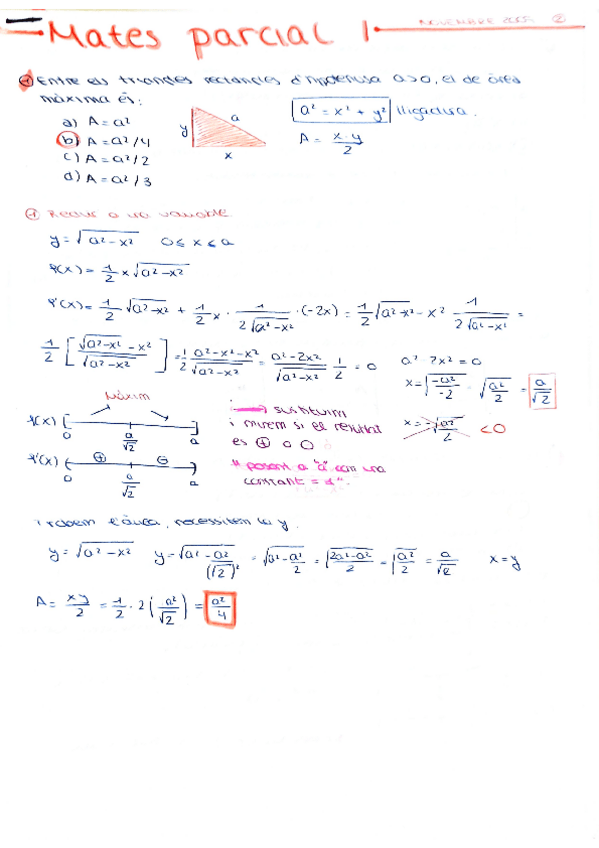 Mates parcial 1
NOVEMBRE 2005 ②
① Entre els triangles rectangles d'hipotenusa a>0, el de àrea
màxima és:
a) A = a²
b) A = a²/4
c) A = a²/2
d) A = a²/3
y
a
x
a² = x² + y² lligadura.
A = x·y/2
① Reduir a una variable.
y = √(a²-x²) 0 ≤ x ≤ a
f(x) = 1/2 x √(a²-x²)
f'(x) = 1/2 √(a²-x²) + 1/2 x · 1/(2√(a²-x²)) · (-2x) = 1/2 √(a²-x²) - x² 1/(2√(a²-x²)) =
1/2 [ (√(a²-x²) - x²)/√(a²-x²) ] = 1/2 (a²-x²-x²)/√(a²-x²) = (a²-2x²)/√(a²-x²) 1/2 = 0
a²-2x² = 0
x = √(-a²/-2) = √(a²/2) = a/√2
x = -√(a²/2) < 0
Màxim
f(x)
0 a/√2 a
f'(x) ⊕ ⊖
0 a/√2 a
→ substituim
i mirem si el resultat
és ⊕ o ⊖
posant a "a" com una
constant = 1".
i trobem l'àrea, necessitem la y.
y = √(a²-x²) y = √(a² - a²/(√2)²) = √(a² - a²/2) = √((2a²-a²)/2) = √(a²/2) = a/√2 x = y
A = xy/2 = 1/2 · 2 (a²/√2) = a²/4